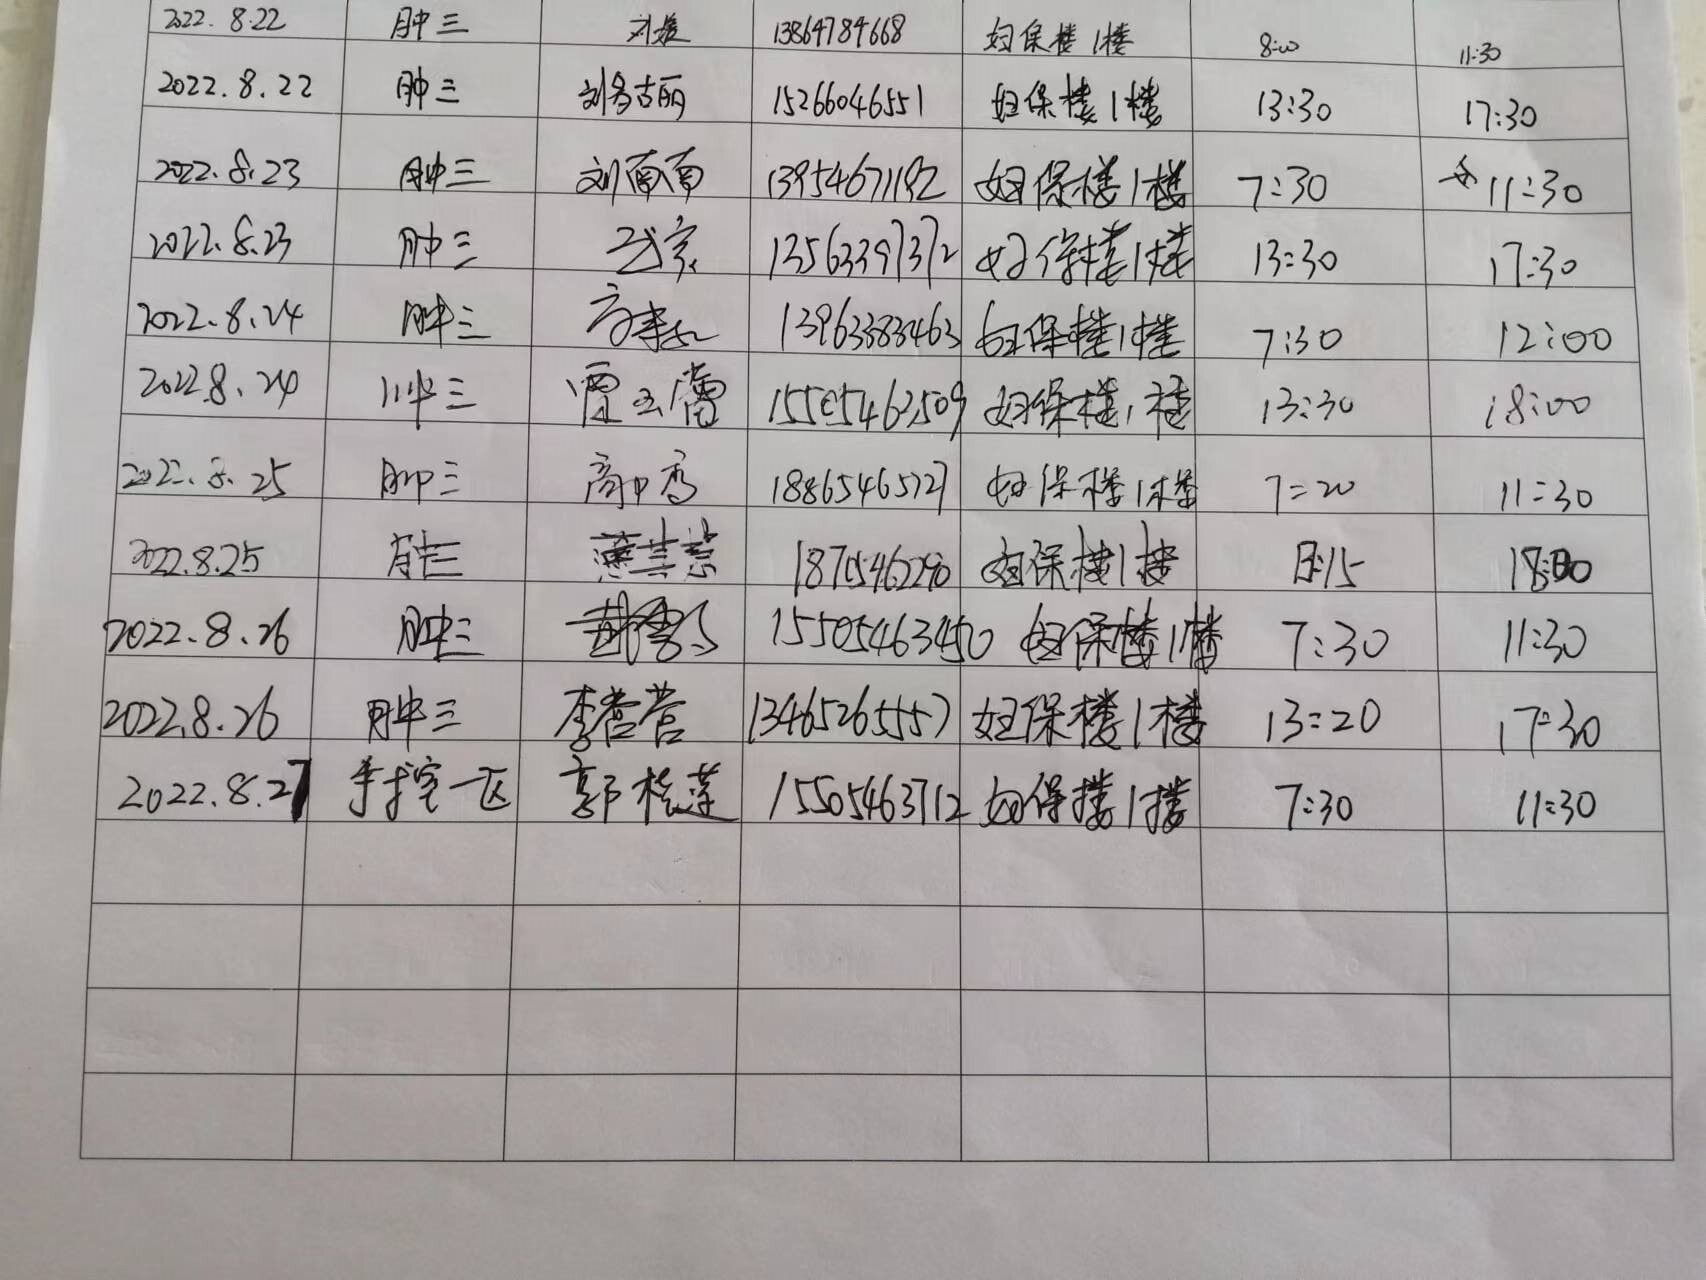 2022. 8.22 肿三 13864784668 妇保楼1楼 8:00 11:30
2022.8.22 肿三 15266046551 妇保楼1楼 13:30 17:30
2022.8.23 肿三 刘南南 13954671192 妇保楼1楼 7:30 11:30
2022.8.23 肿三 13563397372 妇保楼1楼 13:30 17:30
2022.8.24 肿三 13963383463 妇保楼1楼 7:30 12:00
2022.8.24 肿三 15505463509 妇保楼1楼 13:30 18:00
2022.8.25 肿三 18865465727 妇保楼1楼 7:20 11:30
2022.8.25 肿三 18705462290 妇保楼1楼 18:00
2022.8.26 肿三 15505463450 妇保楼1楼 7:30 11:30
2022.8.26 肿三 李营营 13465265557 妇保楼1楼 13:20 17:30
2022.8.27 手术室一区 15505463712 妇保楼1楼 7:30 11:30